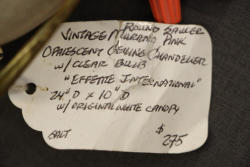 ROUND SAUCER
VINTAGE MURANO PINK
OPALESCENT CEILING CHANDELIER
w/ CLEAR BULB
"EFFETTE INTERNATIONAL"
24" D x 10" D
w/ ORIGINAL WHITE CANOPY
$
275